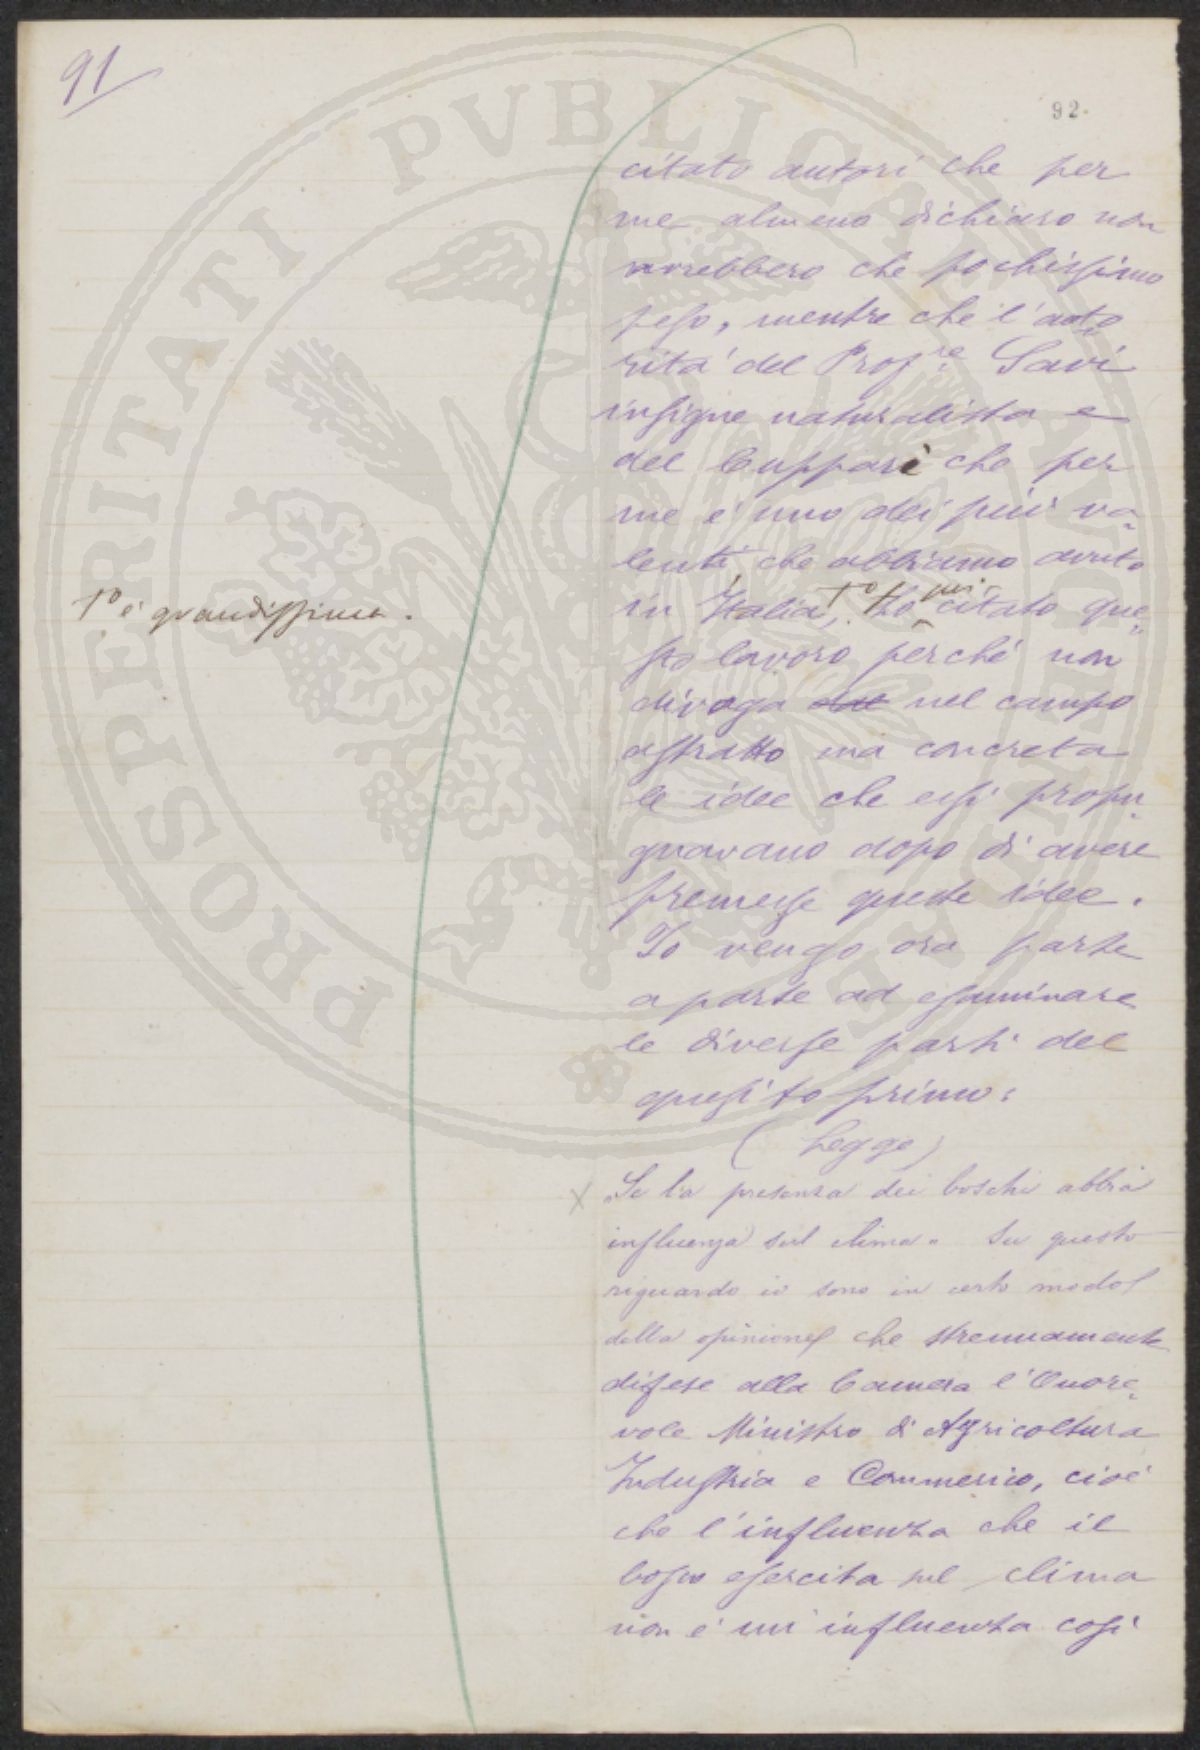 91
92.
citato autori che per
me almeno dichiaro non
avrebbero che pochissimo
peso, mentre che l'auto„
rità del Prof.re Savi
insigne naturalista e
del Cuppari che per
me è uno dei più va„
lenti che abbiamo avuto
in Italia, 1° Ho qui citato que„
sto lavoro perché non
divaga nel campo
astratto ma concreta
le idee che essi propu„
gnavano dopo di avere
premesse queste idee.
Io vengo ora parte
a parte ad esaminare
le diverse parti del
quesito primo:
(Legge)
„Se la presenza dei boschi abbia
influenza sul clima„ Su questo
riguardo io sono in certo modo
della opinione che strenuamente
difese alla Camera l'Onore„
vole Ministro di Agricoltura
Industria e Commercio, cioè
che l'influenza che il
bosco esercita sul clima
non è un'influenza così
1° è grandissima.
PROSPERITATI PVBLICAE